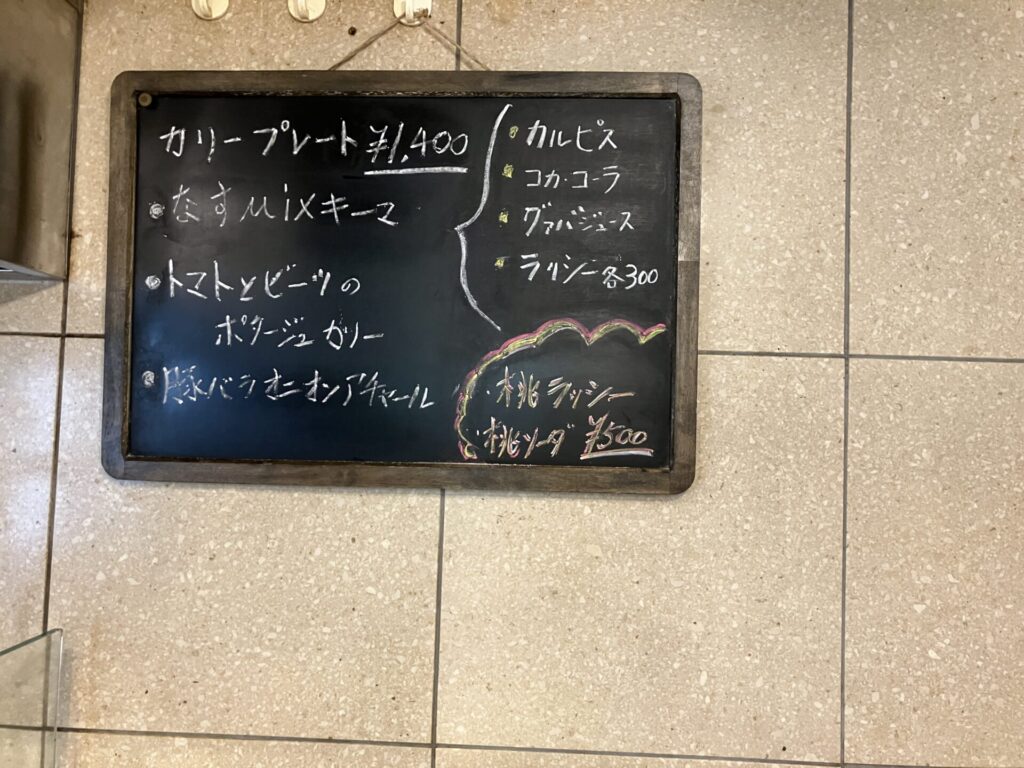 カリープレート ¥1,400
・なすMixキーマ
・トマトとビーツの
ポタージュカリー
・豚バラオニオンアチャール
・カルピス
・コカ・コーラ
・グァバジュース
・ラッシー 各300
・桃ラッシー
・桃ソーダ ¥500